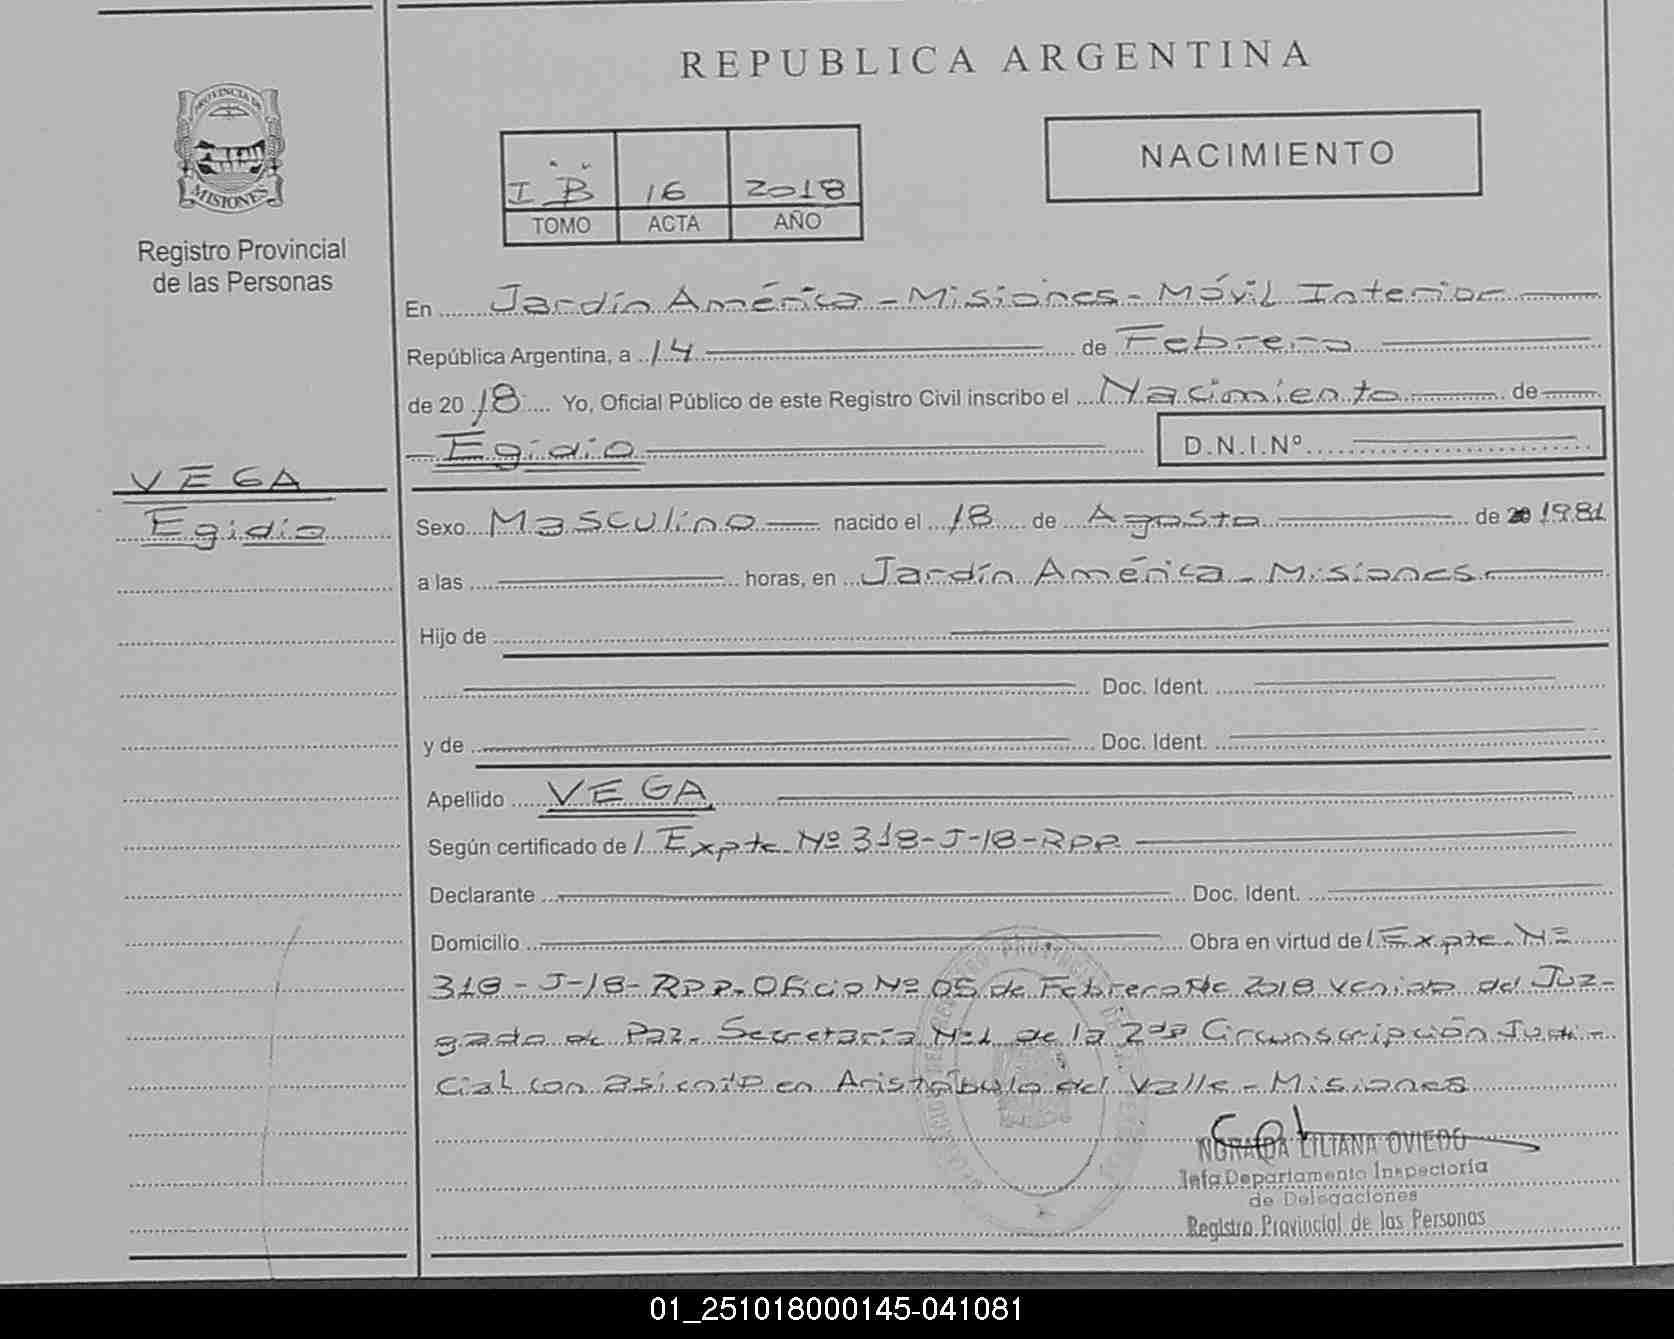 REPUBLICA ARGENTINA
PROVINCIA DE
MISIONES
Registro Provincial
de las Personas
I "B" 16 2018
TOMO ACTA AÑO
NACIMIENTO
En Jardín América - Misiones - Móvil Interior
República Argentina, a 14 de Febrero
de 2018 Yo, Oficial Público de este Registro Civil inscribo el Nacimiento de
Egidio D.N.I.Nº
VEGA
Egidio
Sexo Masculino nacido el 18 de Agosto de 20 1981
a las horas, en Jardín América - Misiones
Hijo de
Doc. Ident.
y de Doc. Ident.
Apellido VEGA
Según certificado de / Expte Nº 318-J-18-RPP
Declarante Doc. Ident.
Domicilio Obra en virtud de / Expte. Nº
318 - J-18- RPP- Oficio Nº 05 de Febrero de 2018 venido del Juz-
gado de Paz- Secretaría Nº1 de la 2da Circunscripción Judi-
cial con asiento en Aristóbulo del Valle - Misiones
LILIANA OVIEDO
Jefa Departamento Inspectoría
de Delegaciones
Registro Provincial de las Personas
01_251018000145-041081